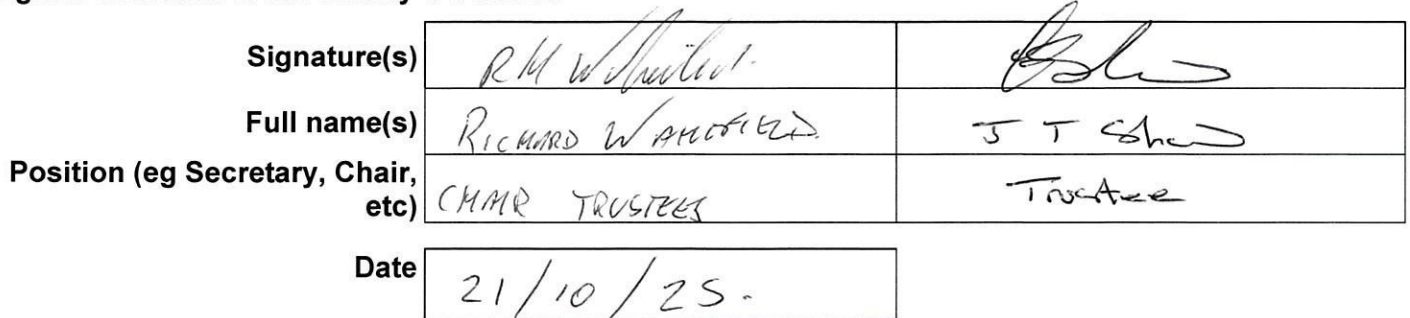 Signature(s) RM
Full name(s) RICHARD WAKEFIELD J T Shaw
Position (eg Secretary, Chair,
etc) CHAIR TRUSTEES Trustee
Date 21/10/25.